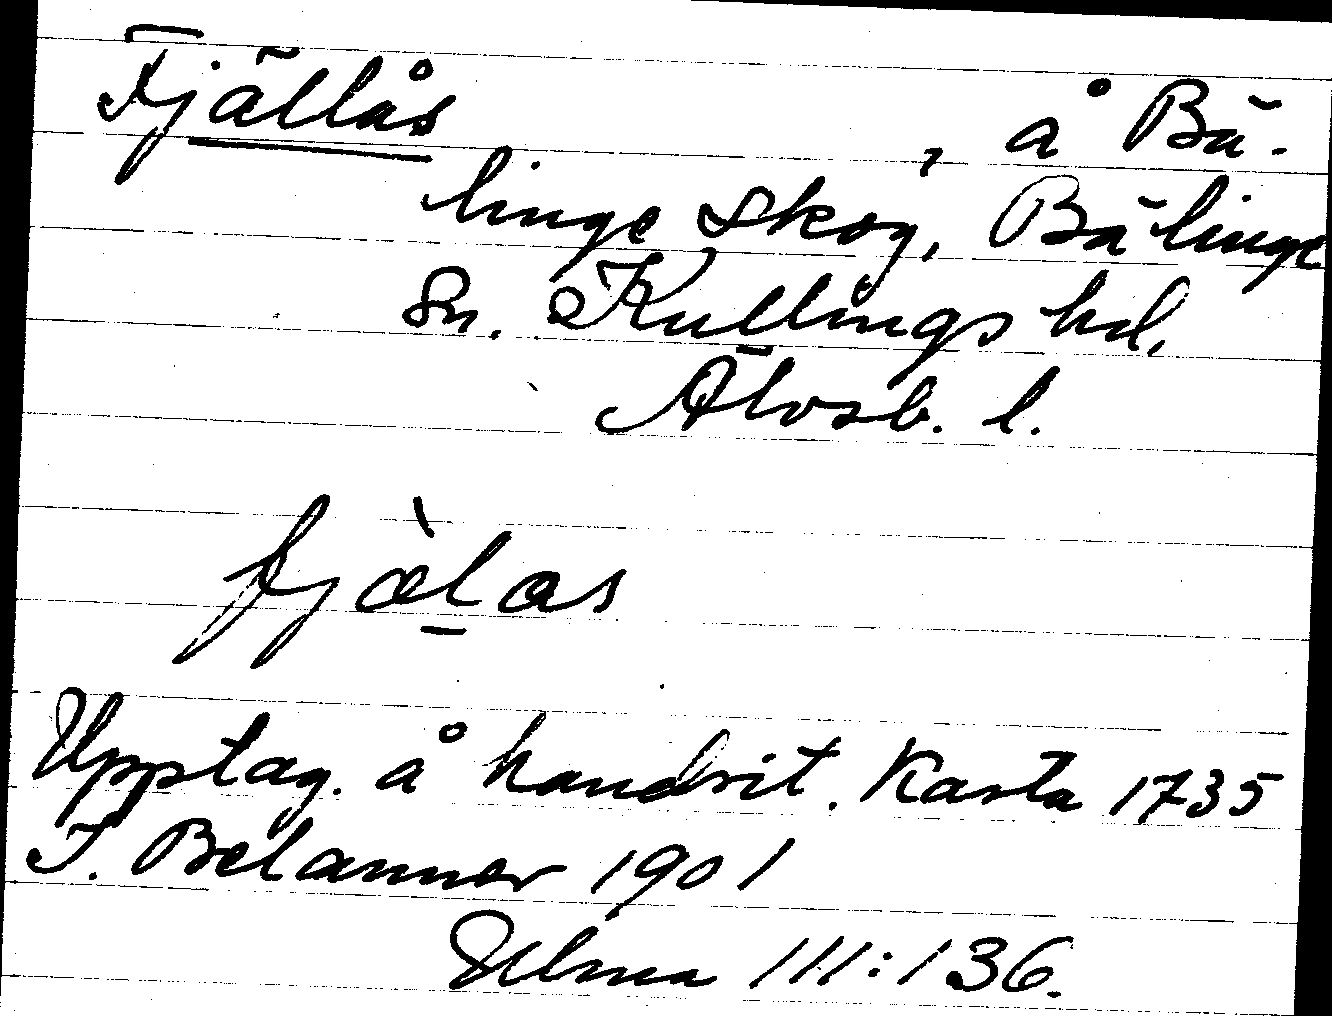 Fjällås, å Bä-
linge Skog, Bälinge
Sn. Kullings hd,
Älvsb. l.
fjæ̀l̠as
Upptag. å handrit. Karta 1735
J. Belanner 1901
Ulma 111:136.